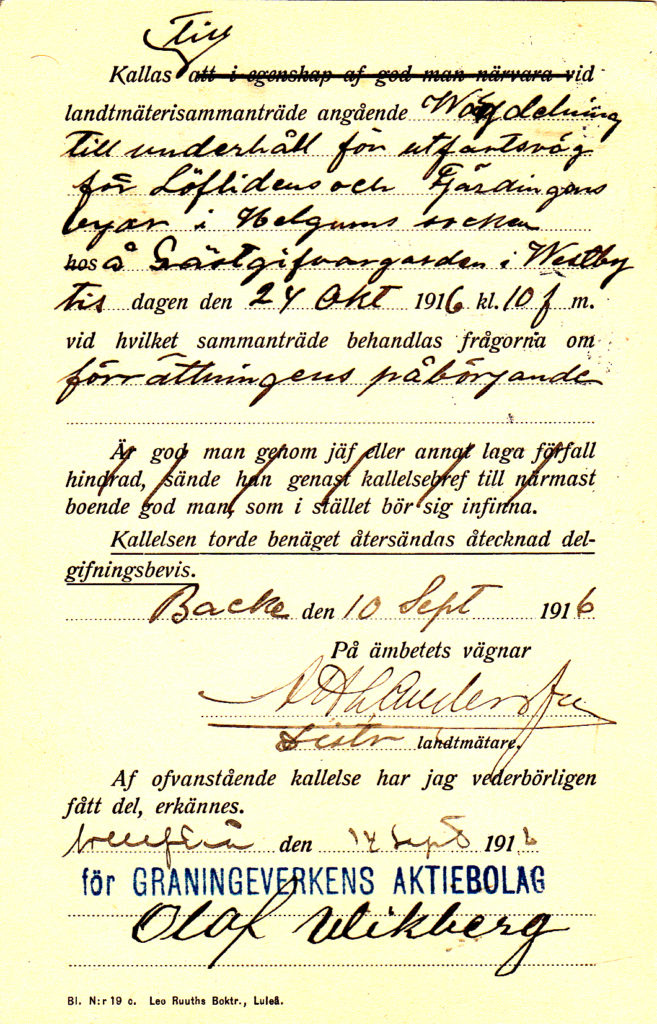 Till
Kallas att i egenskap af god man närvara vid
landtmäterisammanträde angående Wägdelning
till underhåll för utfartsväg
för Löflidens och Fjärdingens
byar i Helgums socken
hos å Gästgifvargården i Westby
tis dagen den 24 Okt 1916 kl. 10 f m.
vid hvilket sammanträde behandlas frågorna om
förrättningens påbörjande
Är god man genom jäf eller annat laga förfall
hindrad, sände han genast kallelsebref till närmast
boende god man, som i stället bör sig infinna.
Kallelsen torde benäget återsändas åtecknad del-
gifningsbevis.
Backe den 10 Sept 1916
På ämbetets vägnar
Distr landtmätare.
Af ofvanstående kallelse har jag vederbörligen
fått del, erkännes.
den 14 Sept 1916
för GRANINGEVERKENS AKTIEBOLAG
Olof Wikberg
Bl. N:r 19 c. Leo Ruuths Boktr., Luleå.